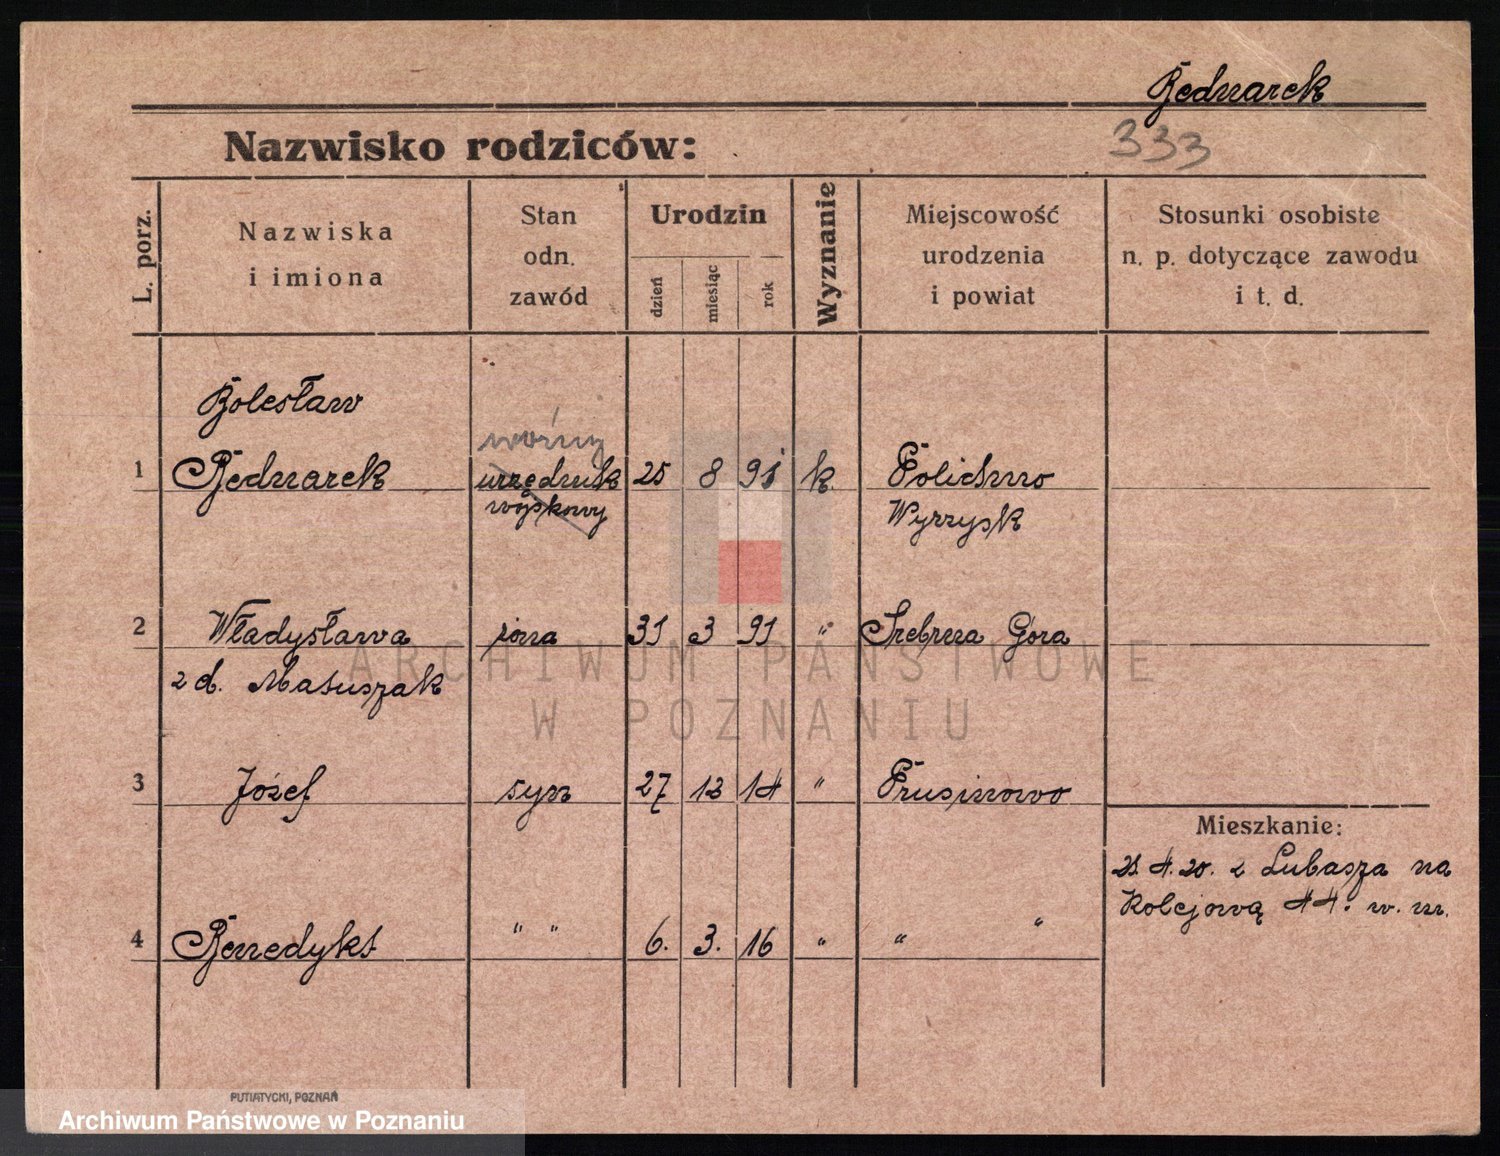 Bednarek
333
Nazwisko rodziców:
L. porz.
Nazwiska
i imiona
Stan
odn.
zawód
Urodzin
dzień
miesiąc
rok
Wyznanie
Miejscowość
urodzenia
i powiat
Stosunki osobiste
n. p. dotyczące zawodu
i t. d.
Bolesław
woźny
1 Bednarek urzędnik 25 8 91 k. Polichno
wojskowy Wyrzysk
2 Władysława żona 31 3 91 " Srebrna Góra
z d. Matuszak
3 Józef syn 27 12 14 " Prusinowo
Mieszkanie:
21.4.20. z Lubasza na
Kolejową 44. w. m.
4 Benedykt " " 6. 3. 16 " " "
ARCHIWUM PAŃSTWOWE
W POZNANIU
PUTIATYCKI, POZNAŃ
Archiwum Państwowe w Poznaniu